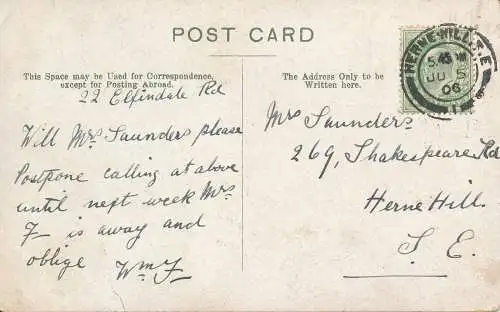 POST CARD
This Space may be Used for Correspondence,
except for Posting Abroad.
The Address Only to be
Written here.
HERNE-HILL S.E
5.45 
JU 
06
22 Elfindale Rd
Will Mrs Saunders please
Postpone calling at above
until next week Mrs
F— is away and
oblige Wm F
Mrs Saunders
269, Shakespeare Rd
Herne Hill.
S. E.